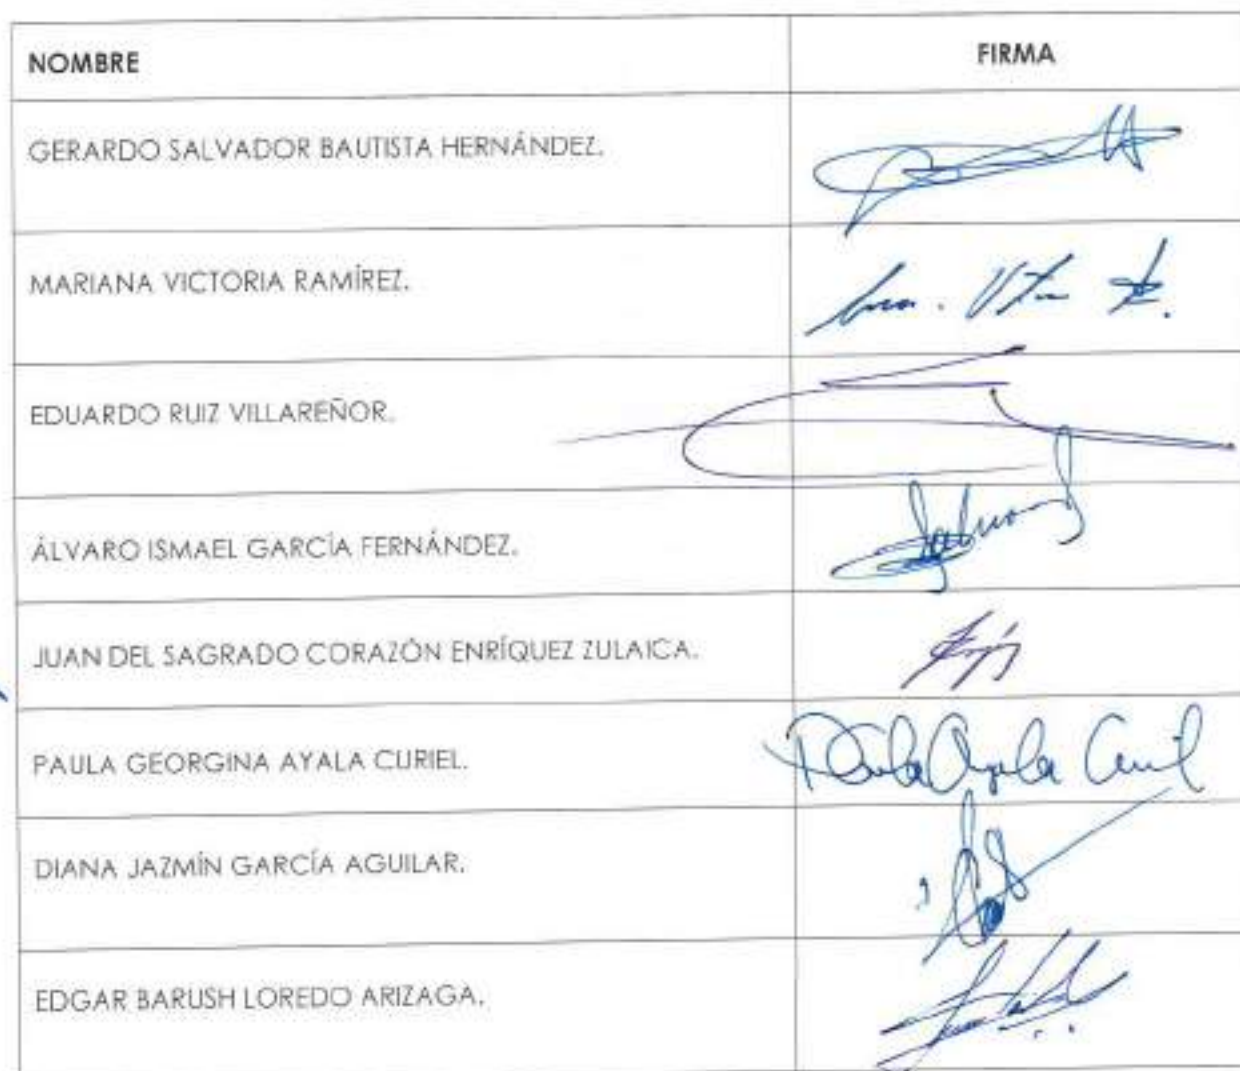 NOMBRE FIRMA
GERARDO SALVADOR BAUTISTA HERNÁNDEZ.
MARIANA VICTORIA RAMÍREZ.
EDUARDO RUIZ VILLAREÑOR.
ÁLVARO ISMAEL GARCÍA FERNÁNDEZ.
JUAN DEL SAGRADO CORAZÓN ENRÍQUEZ ZULAICA.
PAULA GEORGINA AYALA CURIEL. Paula Ayala Curiel
DIANA JAZMÍN GARCÍA AGUILAR.
EDGAR BARUSH LOREDO ARIZAGA.